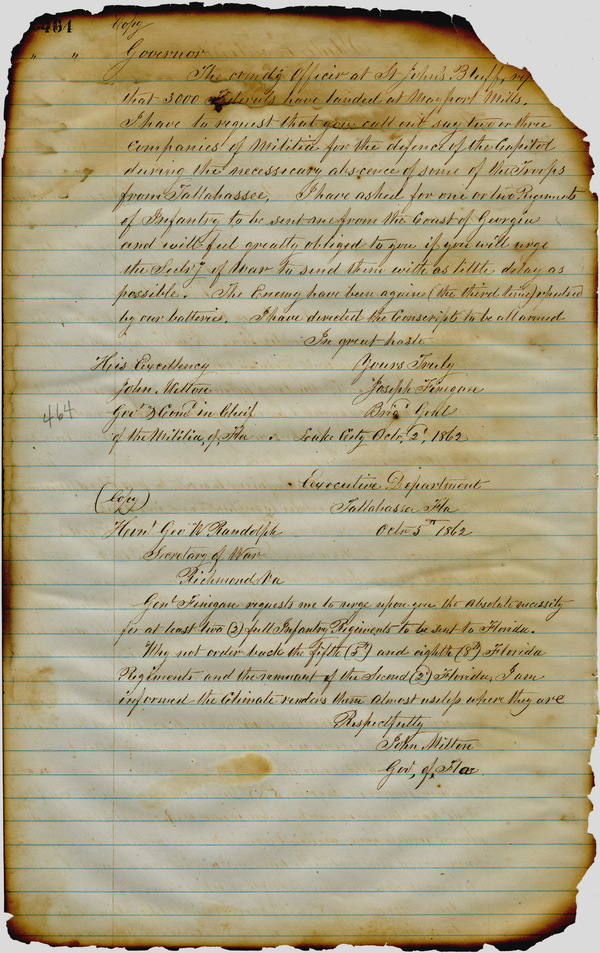 464
Copy
" " Governor
The comdg Officer at St John's Bluff, rep
that 3000 Federals have landed at Mayport Mills.
I have to request that you call out say two or three
Companies of Militia for the defence of the Capitol
during the necessary abscence of some of the Troops
from Tallahassee, I have asked for one or two Regiments
of Infantry to be sent me from the Coast of Georgia
and will feel greatly obliged to you if you will urge
the Secty of War to send them with as little delay as
possible. The Enemy have been again (the third time) repulsed
by our batteries. I have directed the Conscripts to be all armed
In great haste
His Excellency Yours Truly
John Milton Joseph Finegan
Gov & Comd in Chief Brigd Genl
464
of the Militia of Fla. Lake City Octo, 2d, 1862
Executive Department
(Copy) Tallahassee Fla
Honl Geo W Randolph Octo 5th 1862
Secretary of War
Richmond Va
Genl Finegan requests me to urge upon you the absolute necessity
for at least two (2) full Infantry Regiments to be sent to Florida.
Why not order back the fifth (5th) and eighth (8th) Florida
Regiments and the remnant of the Second (2d) Florida, I am
informed the Climate renders them almost useless where they are
Respectfully
John Milton
Gov, of, Fla